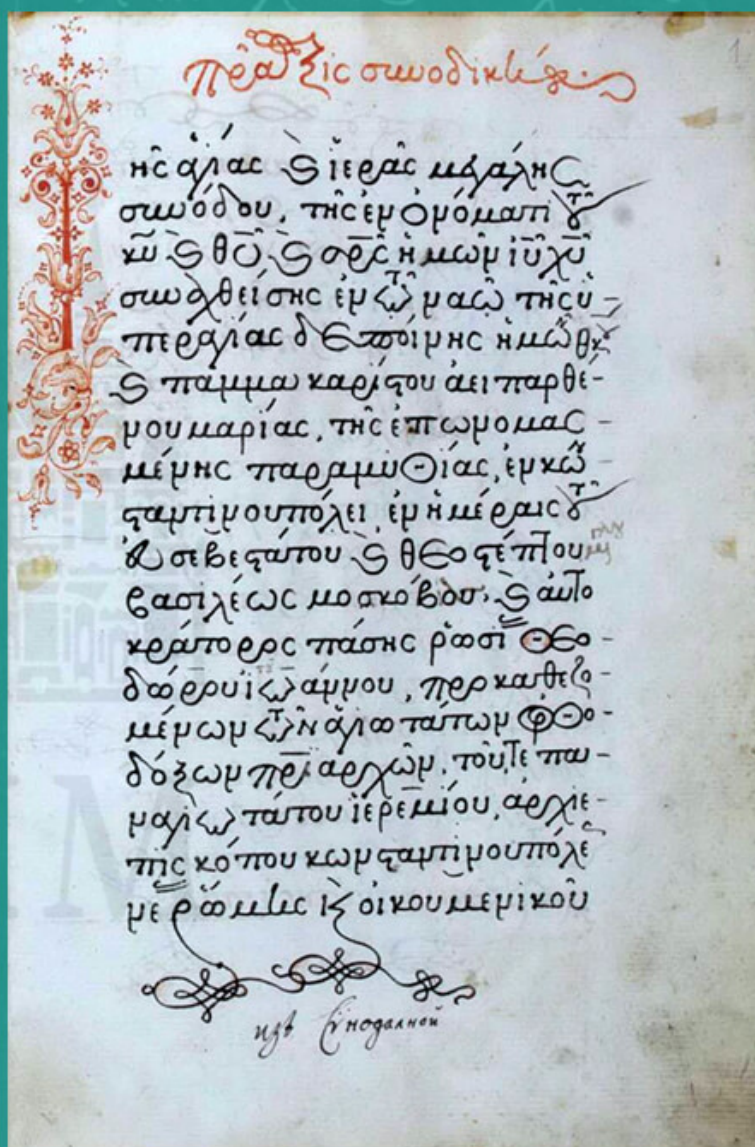 πρᾶξις συνοδική
ῆς ἁγίας ϗ ἱερᾶς μεγάλης
συνόδου, τῆς ἐν ὀνόματι τοῦ
κυ̅ ϗ θυ̅ ϗ σρ̅ς ἡμῶν ἰυ̅ χυ̅
συναχθείσης ἐν τῶ ναῶ τῆς ὑ-
περαγίας δεσποίνης ἡμῶν θκου
ϗ παμμακαρίστου ἀειπαρθέ-
νου μαρίας, τῆς ἐπωνομασ-
μένης παραμυθίας, ἐν κων
σταντινουπόλει, ἐν ἡμέραις τοῦ
εὐσεβεστάτου ϗ θεοστέπτου
βασιλέως μοσκόβου, ϗ αὐτο
κράτορος πάσης ῥωσί θεο-
δώρου ἰωάννου, προκαθεζο-
μένων τῶν ἁγιωτάτων ὀρθο-
δόξων πρι̅αρχῶν, τοῦ, τε πα-
ναγιωτάτου ἱερεμίου, ἀρχιε-
πισκόπου κωνσταντινουπόλε
νε ῥώμης ϗ οἰκουμενικοῦ
изъ Сѵнодалной